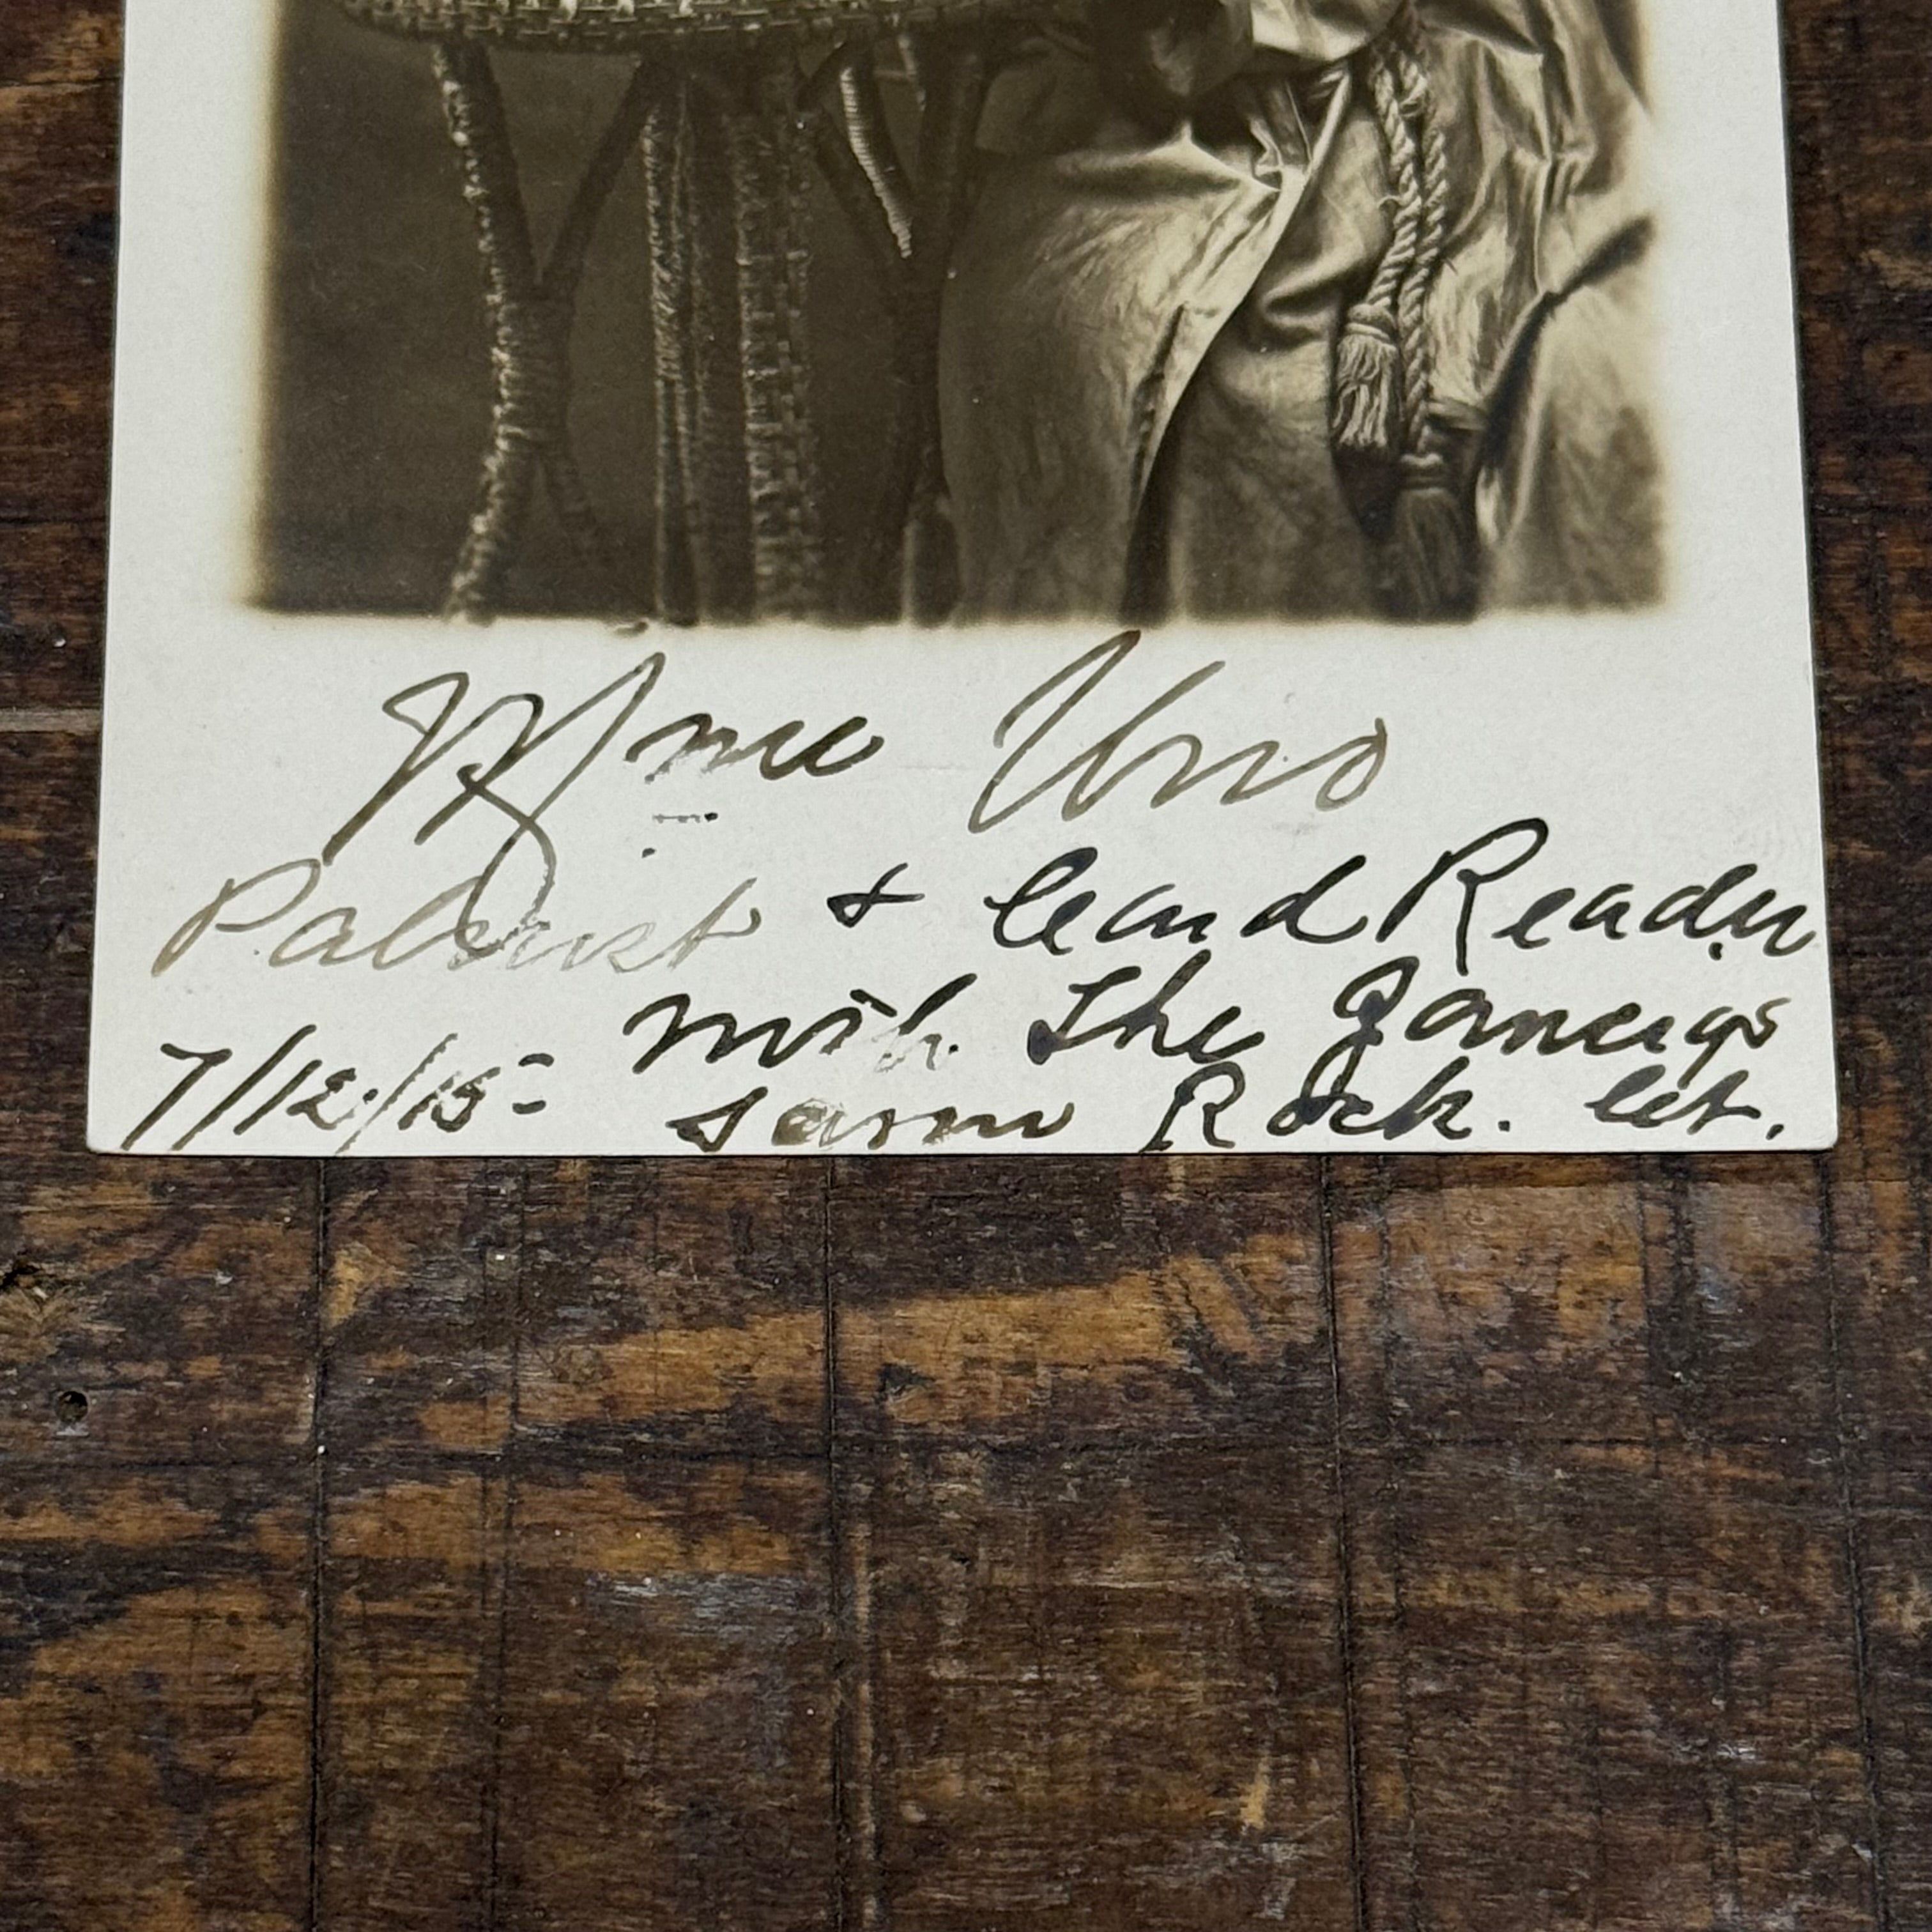 Mme Uno
Palmist & Card Reader
with The Zancigs
7/12/15 = same Rock. Ct.